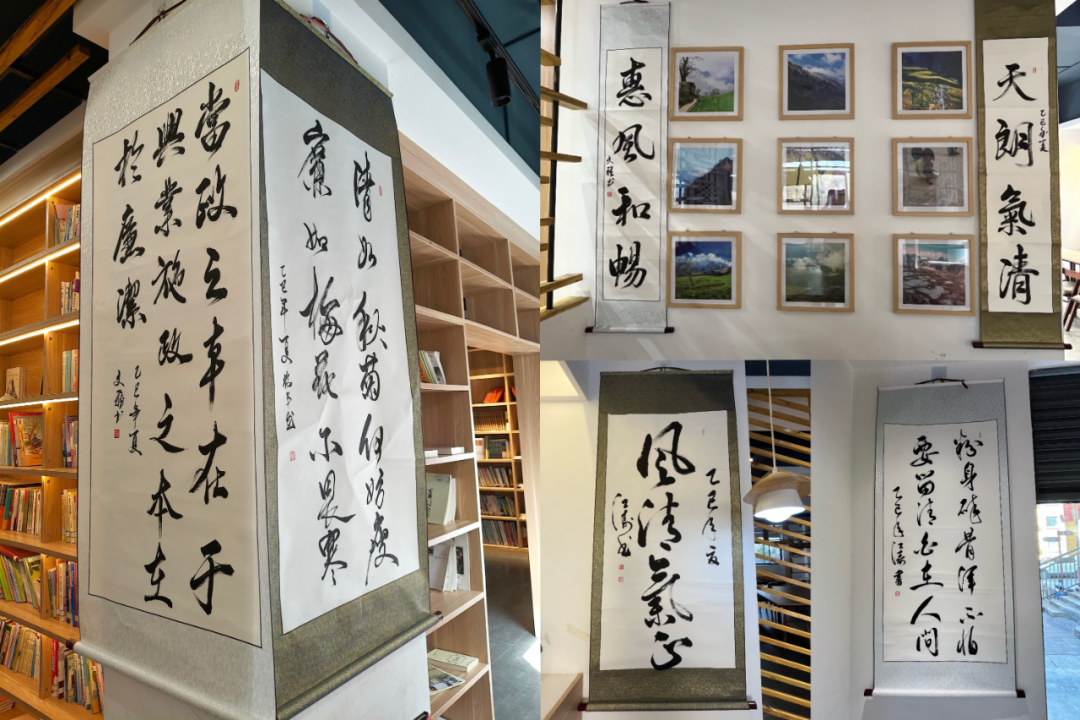 當政之事在于
興業施政之本在
於廉潔
乙巳年夏
清如秋菊何妨瘦
廉如梅花不畏寒
乙巳年夏
天朗氣清
乙巳年夏
惠風和暢
乙巳年夏
風清氣正
江涛书
粉身碎骨渾不怕
要留清白在人間
乙巳年江涛書